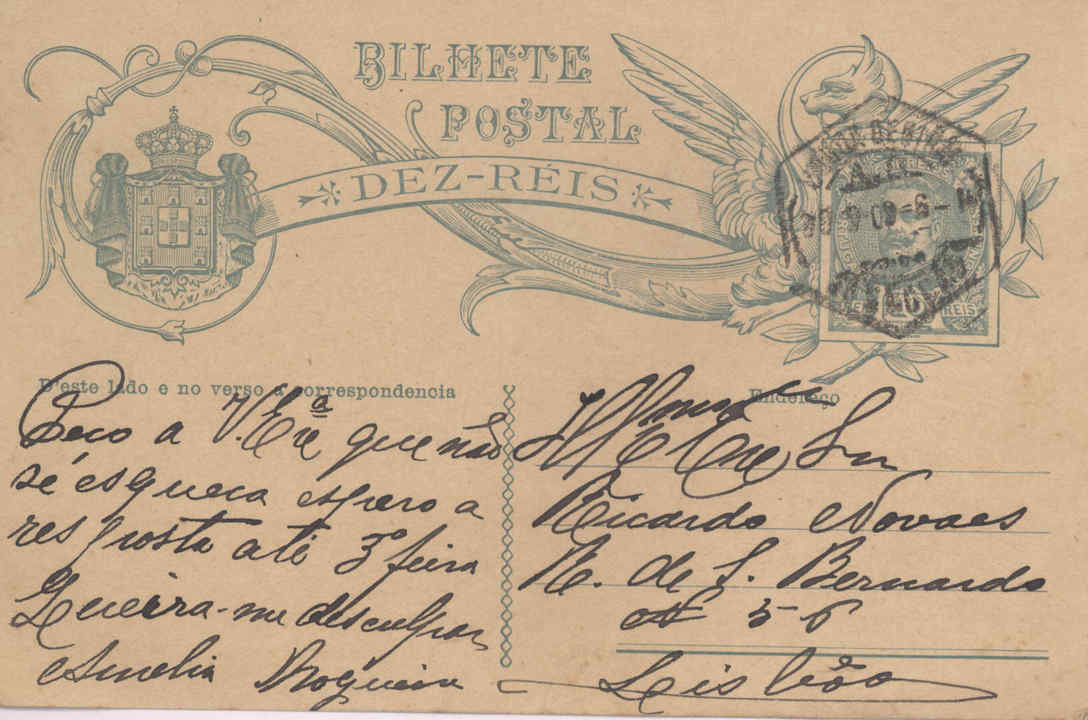 BILHETE
POSTAL
DEZ-RÉIS
REIS
D'este lado e no verso a correspondencia
Endereço
Peco a V. Exª que não
se esqueca espero a
resposta até 3ª feira
Queira-me desculpar
Amelia Nogueira
Illmo e Exmo Snr
Ricardo Novaes
R. de S. Bernardo
Nº 56
Lisbôa